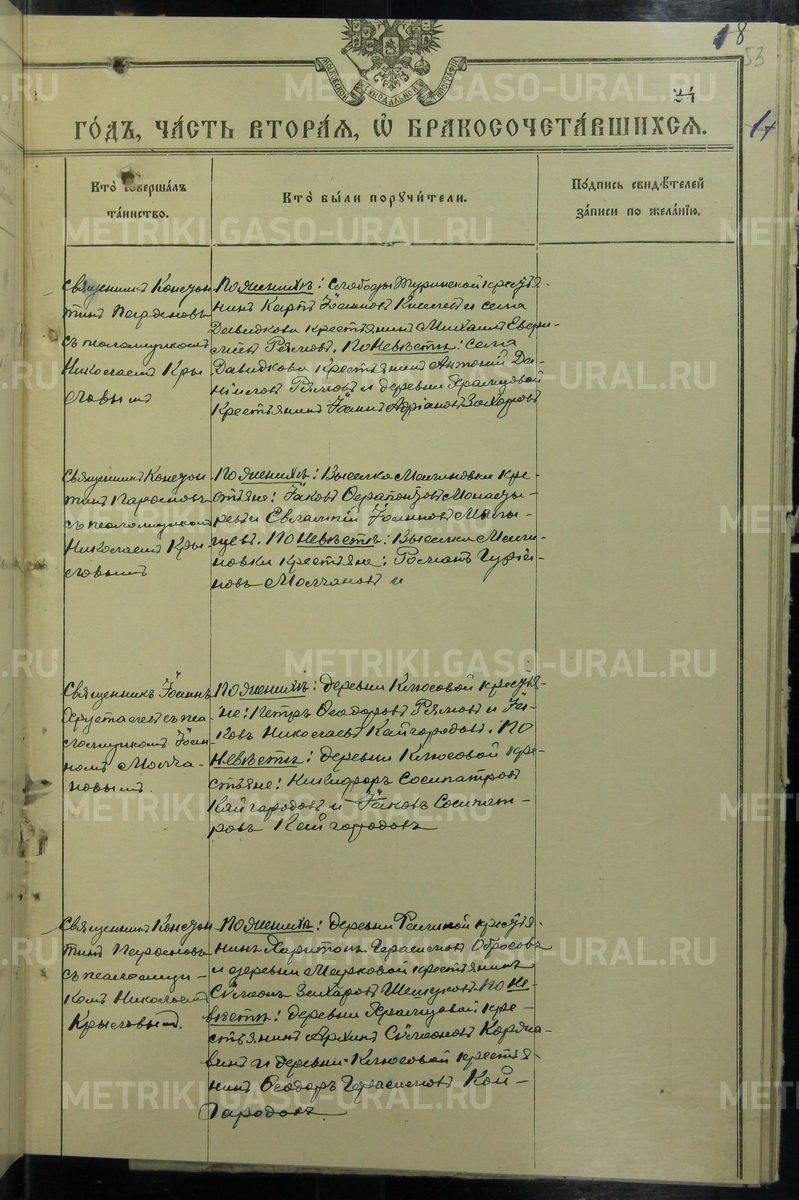 18
53
34
МОСКОВСКОЙ СѴНОДАЛЬНОЙ ТИПОГРАФІИ
17
ГОДЪ, ЧАСТЬ ВТОРАЯ, Ѡ БРАКОСОЧЕТАВШИХСЯ.
Кто совершалъ
таинство.
Кто были поручители.
Подпись свидѣтелей
записи по желанію.
Священникъ Констан
тинъ Парѳеновъ
съ псаломщикомъ
Николаемъ Кры
ловымъ
По женихѣ: Слободы Туринской крестья-
нинъ Карпъ Іоанновъ и села
Давыдкова крестьянинъ Михаилъ
Рямовъ. По невѣстѣ: Села
Давыдкова крестьянинъ Антоній Да-
ніиловъ Рямовъ и деревни
Крестьянинъ Іоаннъ Адріановъ Захаровъ
Священникъ Констан
тинъ Парѳеновъ
съ псаломщикомъ
Николаемъ Кры
ловымъ
По женихѣ: Выселка Малиновки кре-
стьяне: Іаковъ Ѳерапонтовъ Монасты-
ревъ и Евлампій Іоанновъ Маль-
цевъ. По невѣстѣ: Выселка Мали-
новки крестьяне: Романъ Гурія-
новъ Молчановъ и
Священникъ Іоаннъ
Хрусталевъ съ пса
ломщикомъ Іоан
номъ Молча-
новымъ.
По женихѣ: деревни Клюсовой крестья-
не: Петръ Ѳеодоровъ Рямовъ и Іа-
ковъ Николаевъ Кайгородовъ. По
невѣстѣ: деревни Клюсовой кре-
стьяне: Никифоръ Сосипатровъ
Кайгородовъ и Іаковъ Сосипат-
ровъ Кайгородовъ
Священникъ Констан
тинъ Парѳеновъ
съ псаломщи-
комъ Николаемъ
Крыловымъ.
По женихѣ: деревни крестья-
нинъ Харитонъ Герасимовъ Обросовъ
и деревни Марковой крестьянинъ
Сѵмеонъ Захаровъ По не-
вѣстѣ: деревни кре-
стьянинъ Архипъ Сѵмеоновъ Коряка-
винъ и деревни Клюсовой крестья-
нинъ Ѳеодоръ Герасимовъ Кай-
городовъ.
METRIKI.GASO-URAL.RU